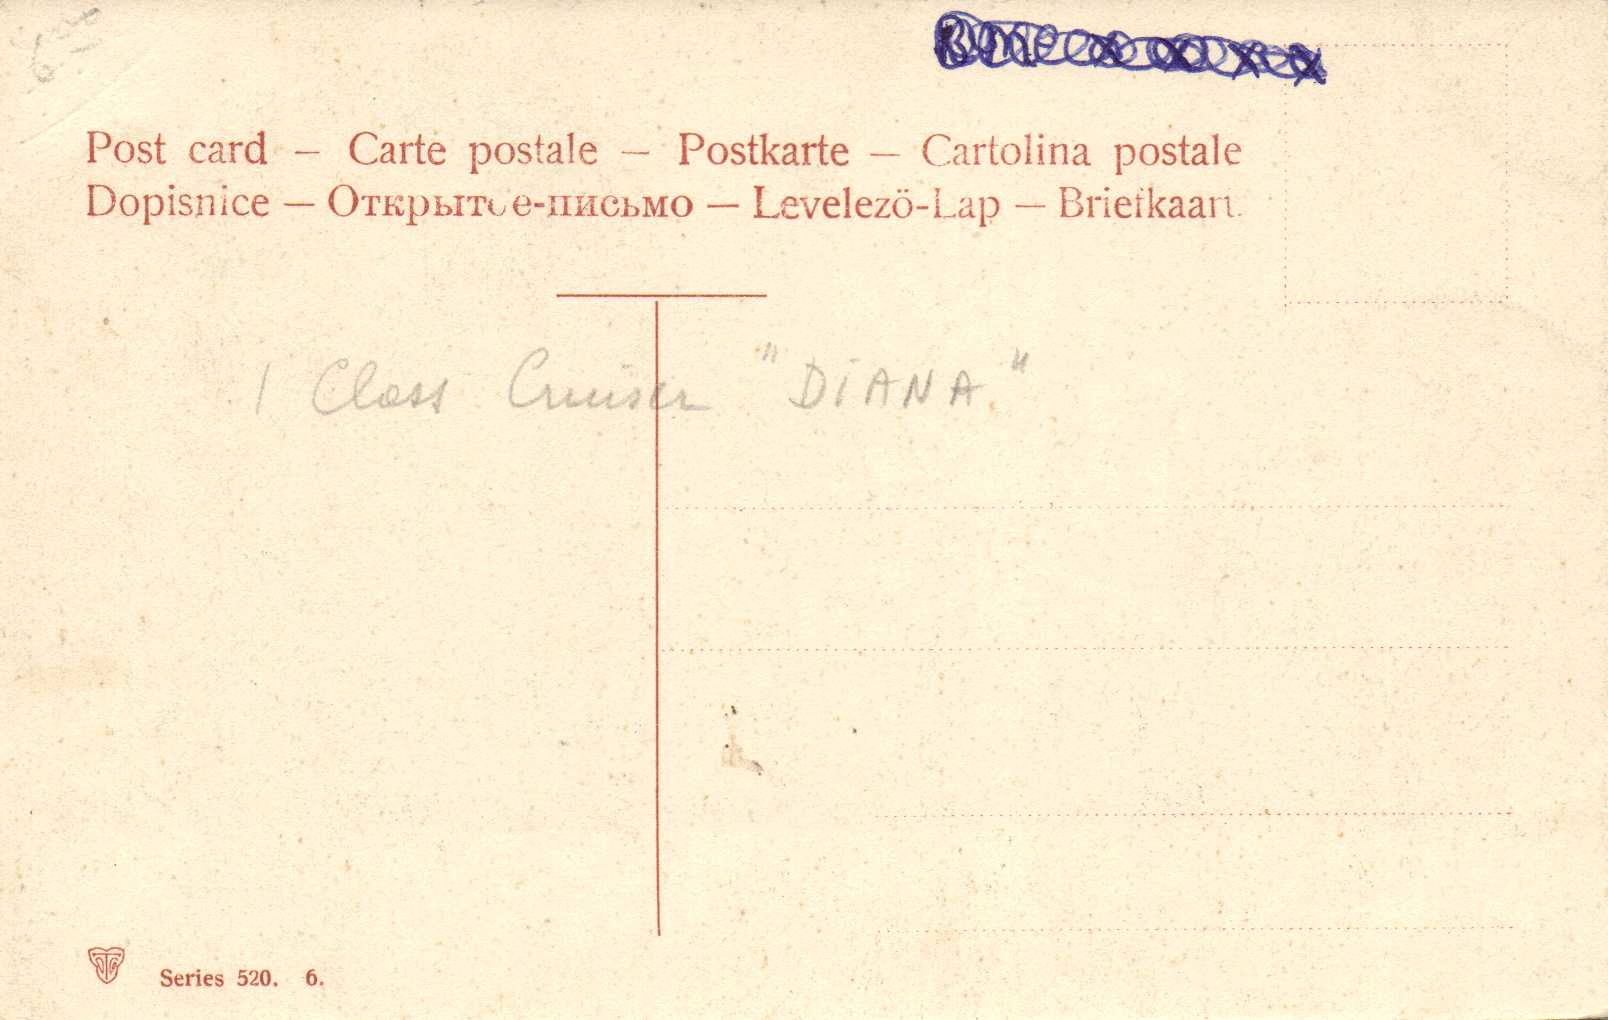 6
Post card – Carte postale – Postkarte – Cartolina postale
Dopisnice – Открытое-письмо – Levelezö-Lap – Briefkaart.
1 Class Cruiser "DIANA"
Series 520. 6.